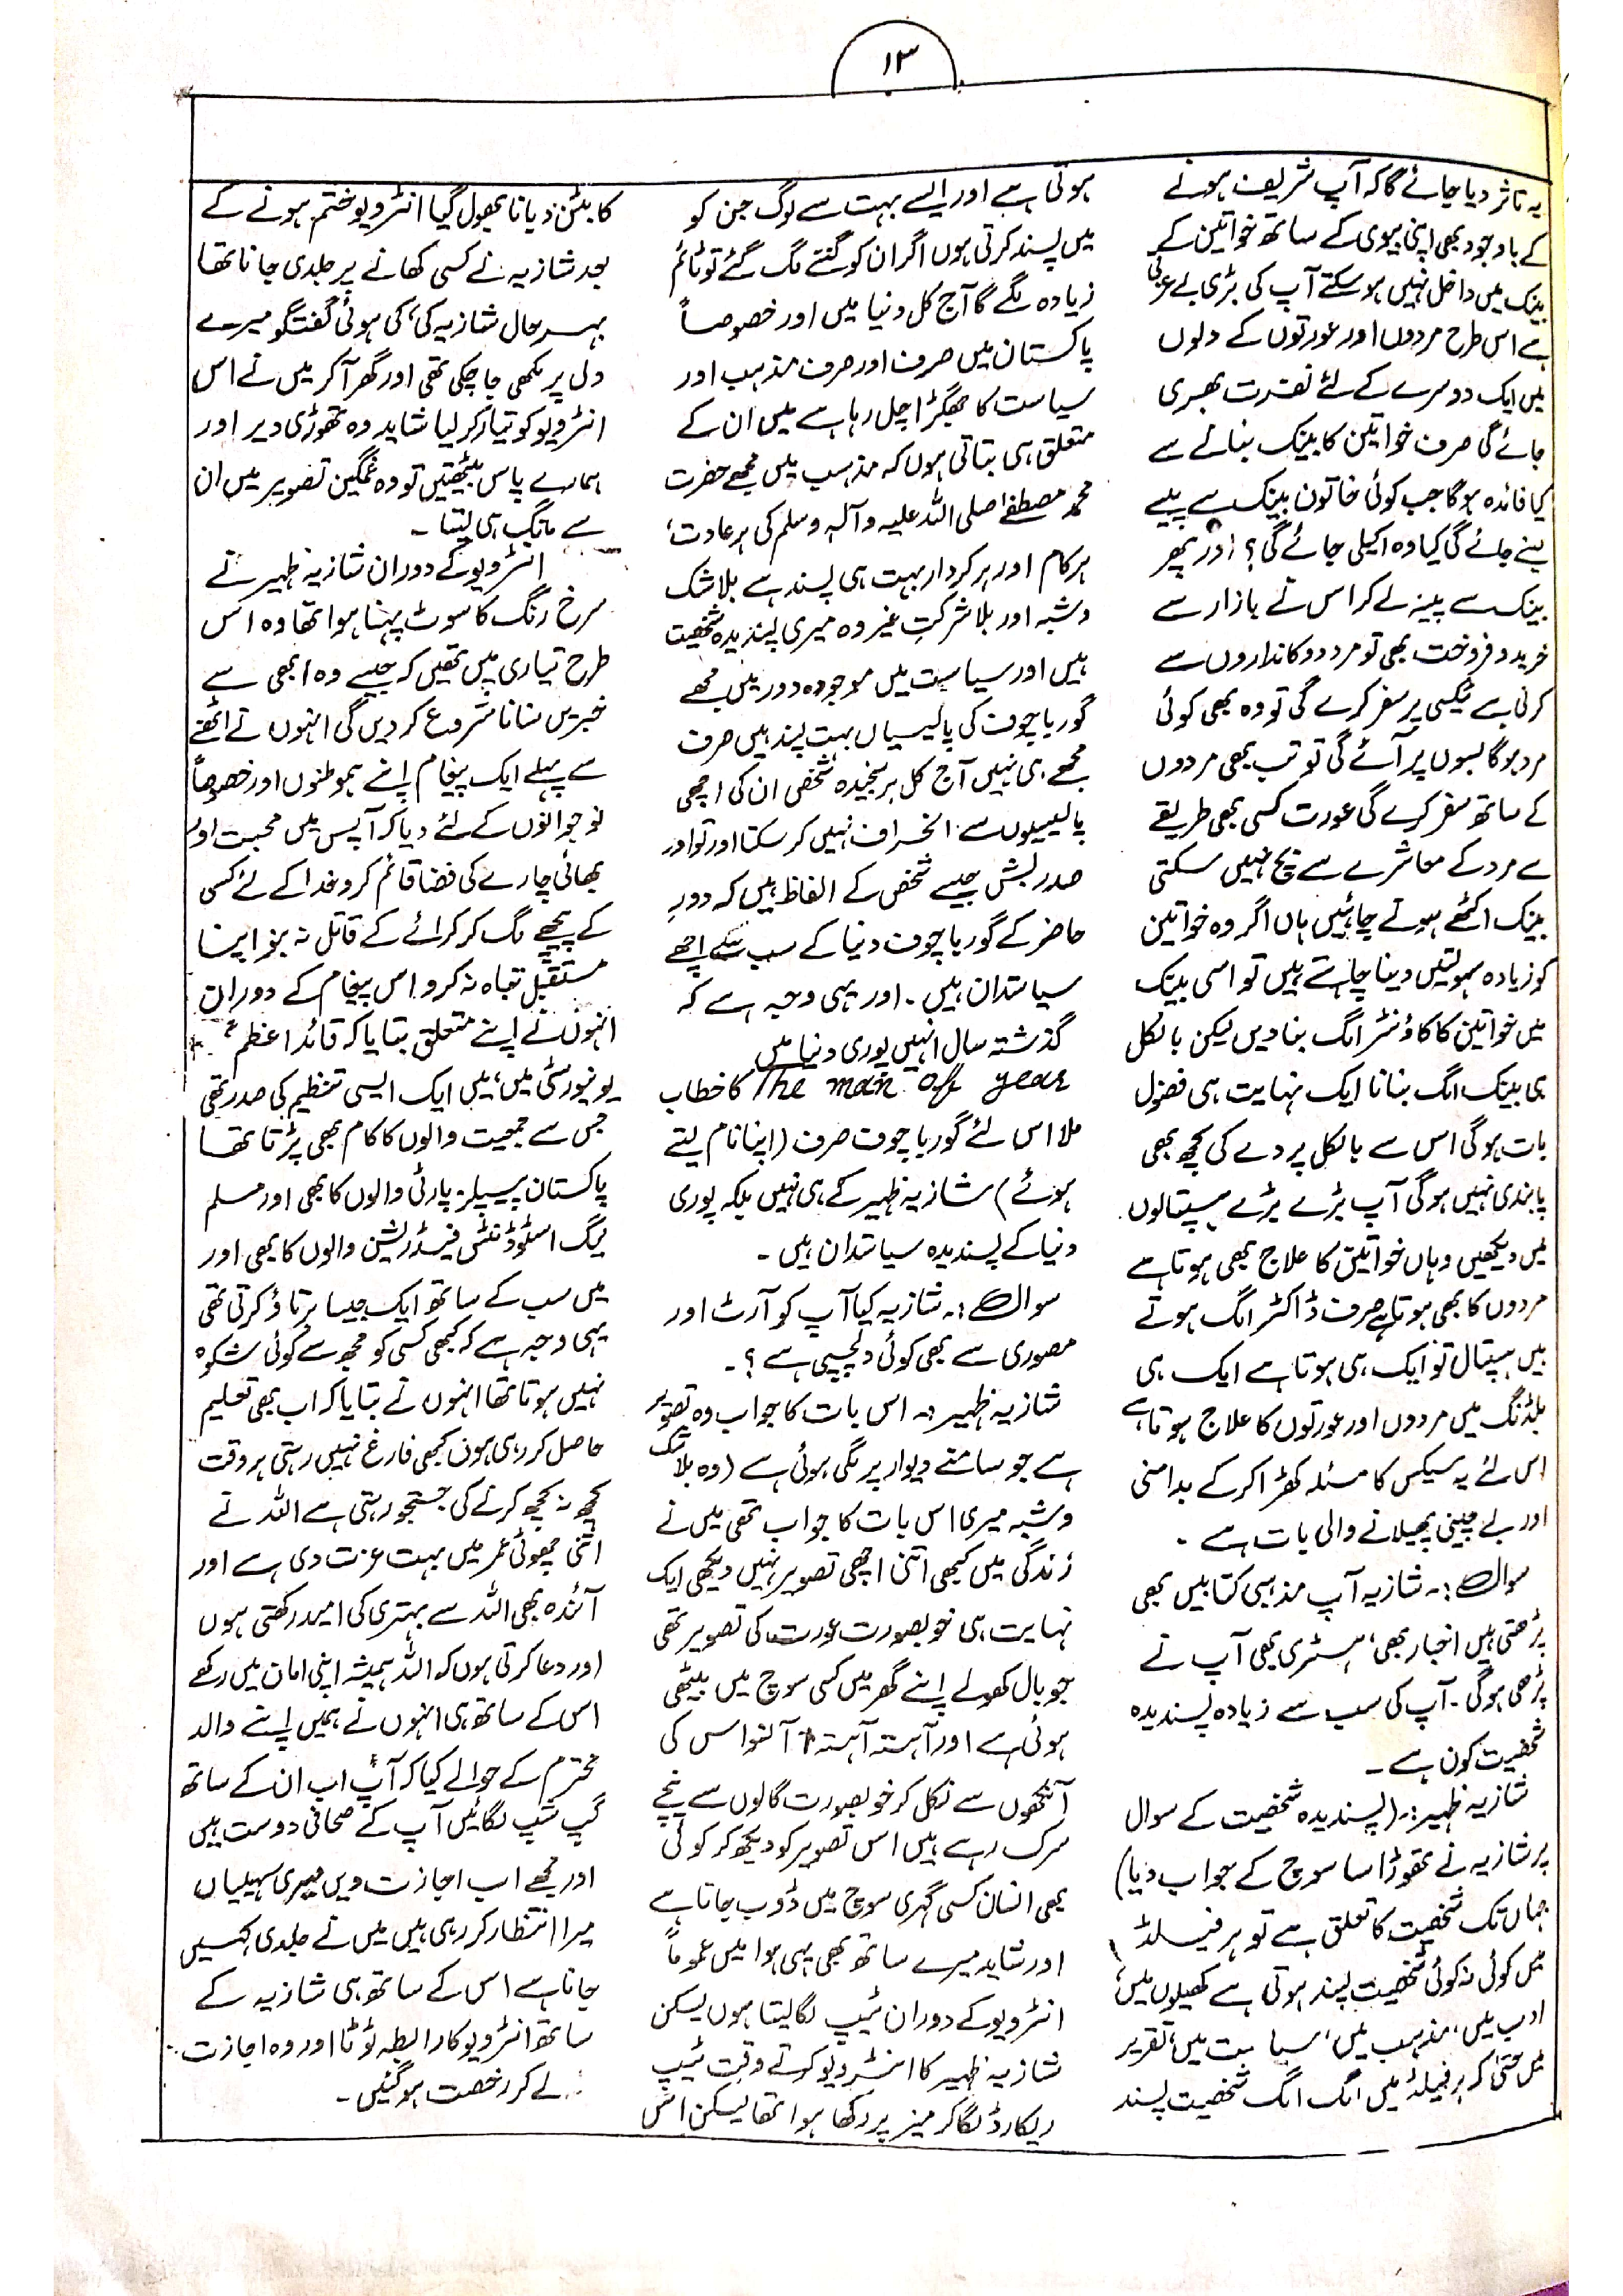 ۱۳
یہ تاثر دیا جائے گا کہ آپ شریف ہونے
کے باوجود بھی اپنی بیوی کے ساتھ خواتین کے
بینک میں داخل نہیں ہو سکتے آپ کی بڑی بے عزتی
ہے اس طرح مردوں اور عورتوں کے دلوں
میں ایک دوسرے کے لئے نفرت بھری
جائے گی صرف خواتین کا بینک بنانے سے
کیا فائدہ ہوگا جب کوئی خاتون بینک سے پیسے
لینے جائے گی کیا وہ اکیلی جائے گی؟ اور پھر
بینک سے پیسہ لے کر اس نے بازار سے
خرید و فروخت بھی تو مرد دوکانداروں سے
کرنی ہے ٹیکسی پر سفر کرے گی تو وہ بھی کوئی
مرد ہوگا بسوں پر آئے گی تو تب بھی مردوں
کے ساتھ سفر کرے گی عورت کسی بھی طریقے
سے مرد کے معاشرے سے بچ نہیں سکتی
بینک اکٹھے ہونے چاہئیں ہاں اگر وہ خواتین
کو زیادہ سہولتیں دینا چاہتے ہیں تو اسی بینک
میں خواتین کا کاؤنٹر الگ بنا دیں لیکن بالکل
ہی بینک الگ بنانا ایک نہایت ہی فضول
بات ہوگی اس سے بالکل پردے کی کچھ بھی
پابندی نہیں ہوگی آپ بڑے بڑے ہسپتالوں
میں دیکھیں وہاں خواتین کا علاج بھی ہوتا ہے
مردوں کا بھی ہوتا ہے صرف ڈاکٹر الگ ہوتے
ہیں ہسپتال تو ایک ہی ہوتا ہے ایک ہی
بلڈنگ میں مردوں اور عورتوں کا علاج ہوتا ہے
اس لئے یہ سیکس کا مسئلہ کھڑا کر کے بدامنی
اور بے چینی پھیلانے والی بات ہے ۔
سوال :۔ شازیہ آپ مذہبی کتابیں بھی
پڑھتی ہیں اخبار بھی، ہسٹری بھی آپ نے
پڑھی ہوگی ۔ آپ کی سب سے زیادہ پسندیدہ
شخصیت کون ہے ۔
شازیہ ظہیر :۔ (پسندیدہ شخصیت کے سوال
پر شازیہ نے تھوڑا سا سوچ کے جواب دیا)
جہاں تک شخصیت کا تعلق ہے تو ہر فیلڈ
میں کوئی نہ کوئی شخصیت پسند ہوتی ہے کھیلوں میں،
ادب میں، مذہب میں، سیاست میں، تقریر
میں حتیٰ کہ ہر فیلڈ میں الگ الگ شخصیت پسند
ہوتی ہے اور ایسے بہت سے لوگ جن کو
میں پسند کرتی ہوں اگر ان کو گننے لگ گئے تو ٹائم
زیادہ لگے گا آج کل دنیا میں اور خصوصاً
پاکستان میں صرف اور صرف مذہب اور
سیاست کا جھگڑا چل رہا ہے میں ان کے
متعلق ہی بتاتی ہوں کہ مذہب میں مجھے حضرت
محمد مصطفےٰ صلی اللہ علیہ وآلہ وسلم کی ہر عادت،
ہر کام اور ہر کردار بہت ہی پسند ہے بلا شک
و شبہ اور بلا شرکتِ غیر وہ میری پسندیدہ شخصیت
ہیں اور سیاست میں موجودہ دور میں مجھے
گورباچوف کی پالیسیاں بہت پسند ہیں صرف
مجھے ہی نہیں آج کل ہر سنجیدہ شخص ان کی اچھی
پالیسیوں سے انحراف نہیں کر سکتا اور تو اور
صدر بش جیسے شخص کے الفاظ ہیں کہ دورِ
حاضر کے گورباچوف دنیا کے سب سے اچھے
سیاستدان ہیں ۔ اور یہی وجہ ہے کہ
گذشتہ سال انہیں پوری دنیا میں
The man off year کا خطاب
ملا اس لئے گورباچوف صرف (اپنا نام لیتے
ہوئے) شازیہ ظہیر کے ہی نہیں بلکہ پوری
دنیا کے پسندیدہ سیاستدان ہیں ۔
سوال :۔ شازیہ کیا آپ کو آرٹ اور
مصوری سے بھی کوئی دلچسپی ہے ؟ ۔
شازیہ ظہیر :۔ اس بات کا جواب وہ تصویر
ہے جو سامنے دیوار پر لگی ہوئی ہے (وہ بلا شک
و شبہ میری اس بات کا جواب تھی میں نے
زندگی میں کبھی اتنی اچھی تصویر نہیں دیکھی ایک
نہایت ہی خوبصورت عورت کی تصویر تھی
جو بال کھولے اپنے گھر میں کسی سوچ میں بیٹھی
ہوئی ہے اور آہستہ آہستہ آنسو اس کی
آنکھوں سے نکل کر خوبصورت گالوں سے نیچے
سرک رہے ہیں اس تصویر کو دیکھ کر کوئی
بھی انسان کسی گہری سوچ میں ڈوب جاتا ہے
اور شاید میرے ساتھ بھی یہی ہوا میں عموماً
انٹرویو کے دوران ٹیپ لگا لیتا ہوں لیکن
شازیہ ظہیر کا انٹرویو کرتے وقت ٹیپ
ریکارڈ لگا کر میز پر رکھا ہوا تھا لیکن اس
کا بٹن دبانا بھول گیا انٹرویو ختم ہونے کے
بعد شازیہ نے کسی کھانے پر جلدی جانا تھا
بہرحال شازیہ کی، کی ہوئی گفتگو میرے
دل پر لکھی جا چکی تھی اور گھر آ کر میں نے اس
انٹرویو کو تیار کر لیا شاید وہ تھوڑی دیر اور
ہمارے پاس بیٹھتیں تو وہ غمگین تصویر میں ان
سے مانگ ہی لیتا ۔
انٹرویو کے دوران شازیہ ظہیر نے
سرخ رنگ کا سوٹ پہنا ہوا تھا وہ اس
طرح تیاری میں تھیں کہ جیسے وہ ابھی سے
خبریں سنانا شروع کر دیں گی انہوں نے اٹھنے
سے پہلے ایک پیغام اپنے ہموطنوں اور خصوصاً
نوجوانوں کے لئے دیا کہ آپس میں محبت اور
بھائی چارے کی فضا قائم کرو خدا کے لئے کسی
کے پیچھے لگ کر کرائے کے قاتل نہ بنو اپنا
مستقبل تباہ نہ کرو اس پیغام کے دوران
انہوں نے اپنے متعلق بتایا کہ قائد اعظمؒ
یونیورسٹی میں، میں ایک ایسی تنظیم کی صدر تھی
جس سے جمعیت والوں کا کام بھی پڑتا تھا
پاکستان پیپلز پارٹی والوں کا بھی اور مسلم
لیگ اسٹوڈنٹس فیڈریشن والوں کا بھی اور
میں سب کے ساتھ ایک جیسا برتاؤ کرتی تھی
یہی وجہ ہے کہ کبھی کسی کو مجھ سے کوئی شکوہ
نہیں ہوتا تھا انہوں نے بتایا کہ اب بھی تعلیم
حاصل کر رہی ہوں کبھی فارغ نہیں رہتی ہر وقت
کچھ نہ کچھ کرنے کی جستجو رہتی ہے اللہ نے
اتنی چھوٹی عمر میں بہت عزت دی ہے اور
آئندہ بھی اللہ سے بہتری کی امید رکھتی ہوں
اور دعا کرتی ہوں کہ اللہ ہمیشہ اپنی امان میں رکھے
اس کے ساتھ ہی انہوں نے ہمیں اپنے والد
محترم کے حوالے کیا کہ آپ اب ان کے ساتھ
گپ شپ لگائیں آپ کے صحافی دوست ہیں
اور مجھے اب اجازت دیں میری سہیلیاں
میرا انتظار کر رہی ہیں میں نے جلدی کہیں
جانا ہے اس کے ساتھ ہی شازیہ کے
ساتھ انٹرویو کا رابطہ ٹوٹا اور وہ اجازت
لے کر رخصت ہو گئیں ۔